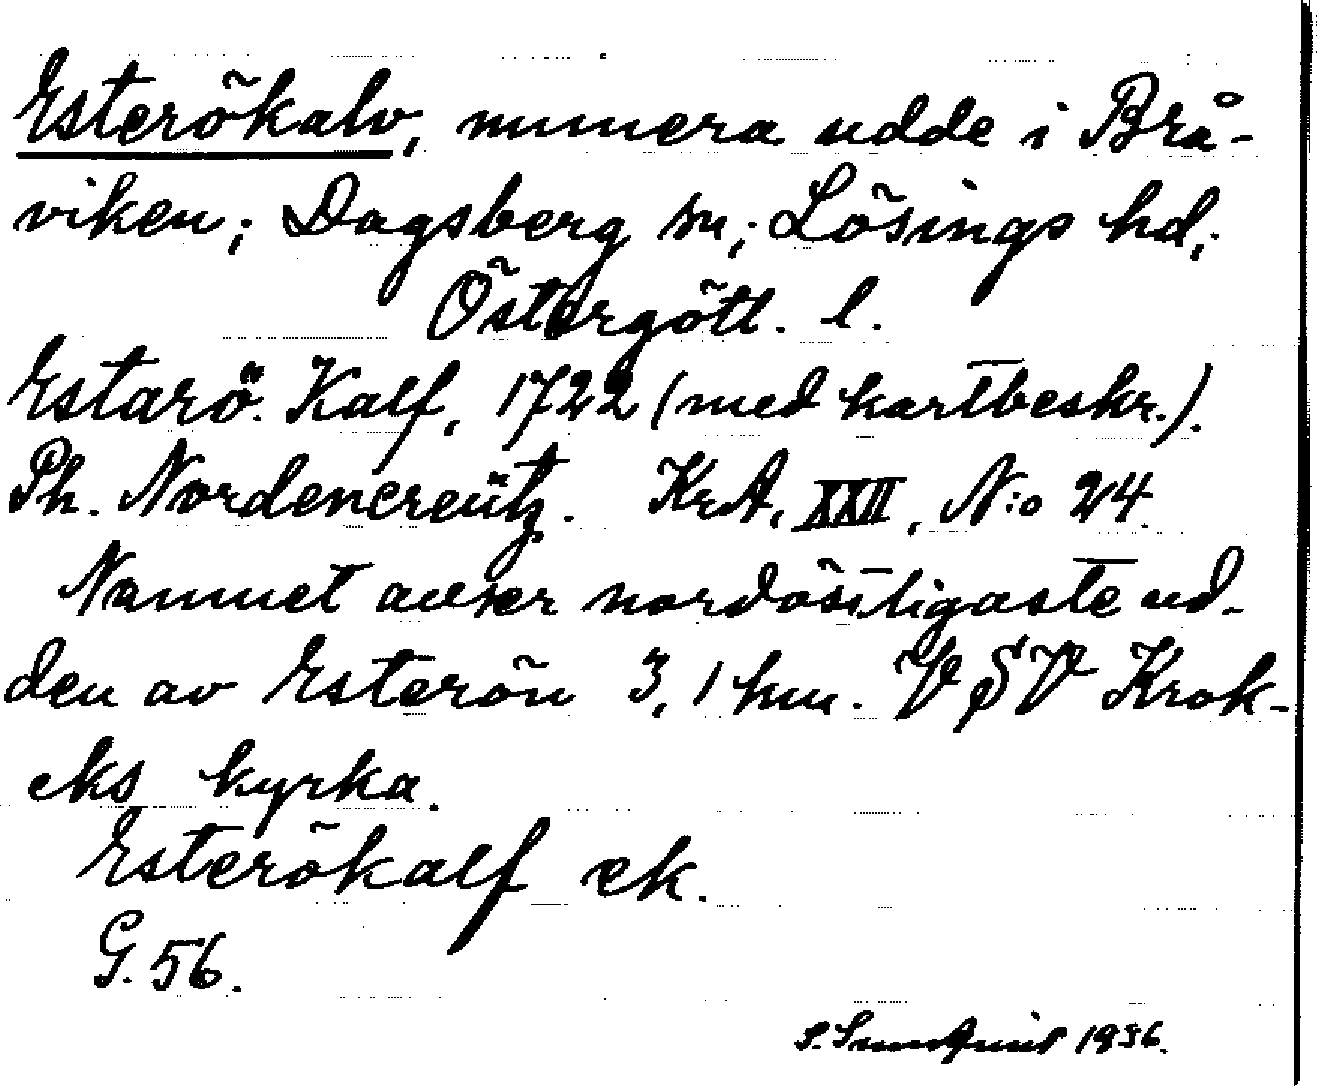 Esterökalv, numera udde i Brå-
viken; Dagsberg sn; Lösings hd,
Östergötl. l.
Estarö. Kalf, 1722 (med kartbeskr.).
Ph. Nordencreütz. KrA, XXII, N:o 24.
Namnet avser nordöstligaste ud-
den av Esterön 3,1 km. V S V Krok-
eks kyrka.
Esterökalf ek.
G. 56.
S. Sundquist 1936.